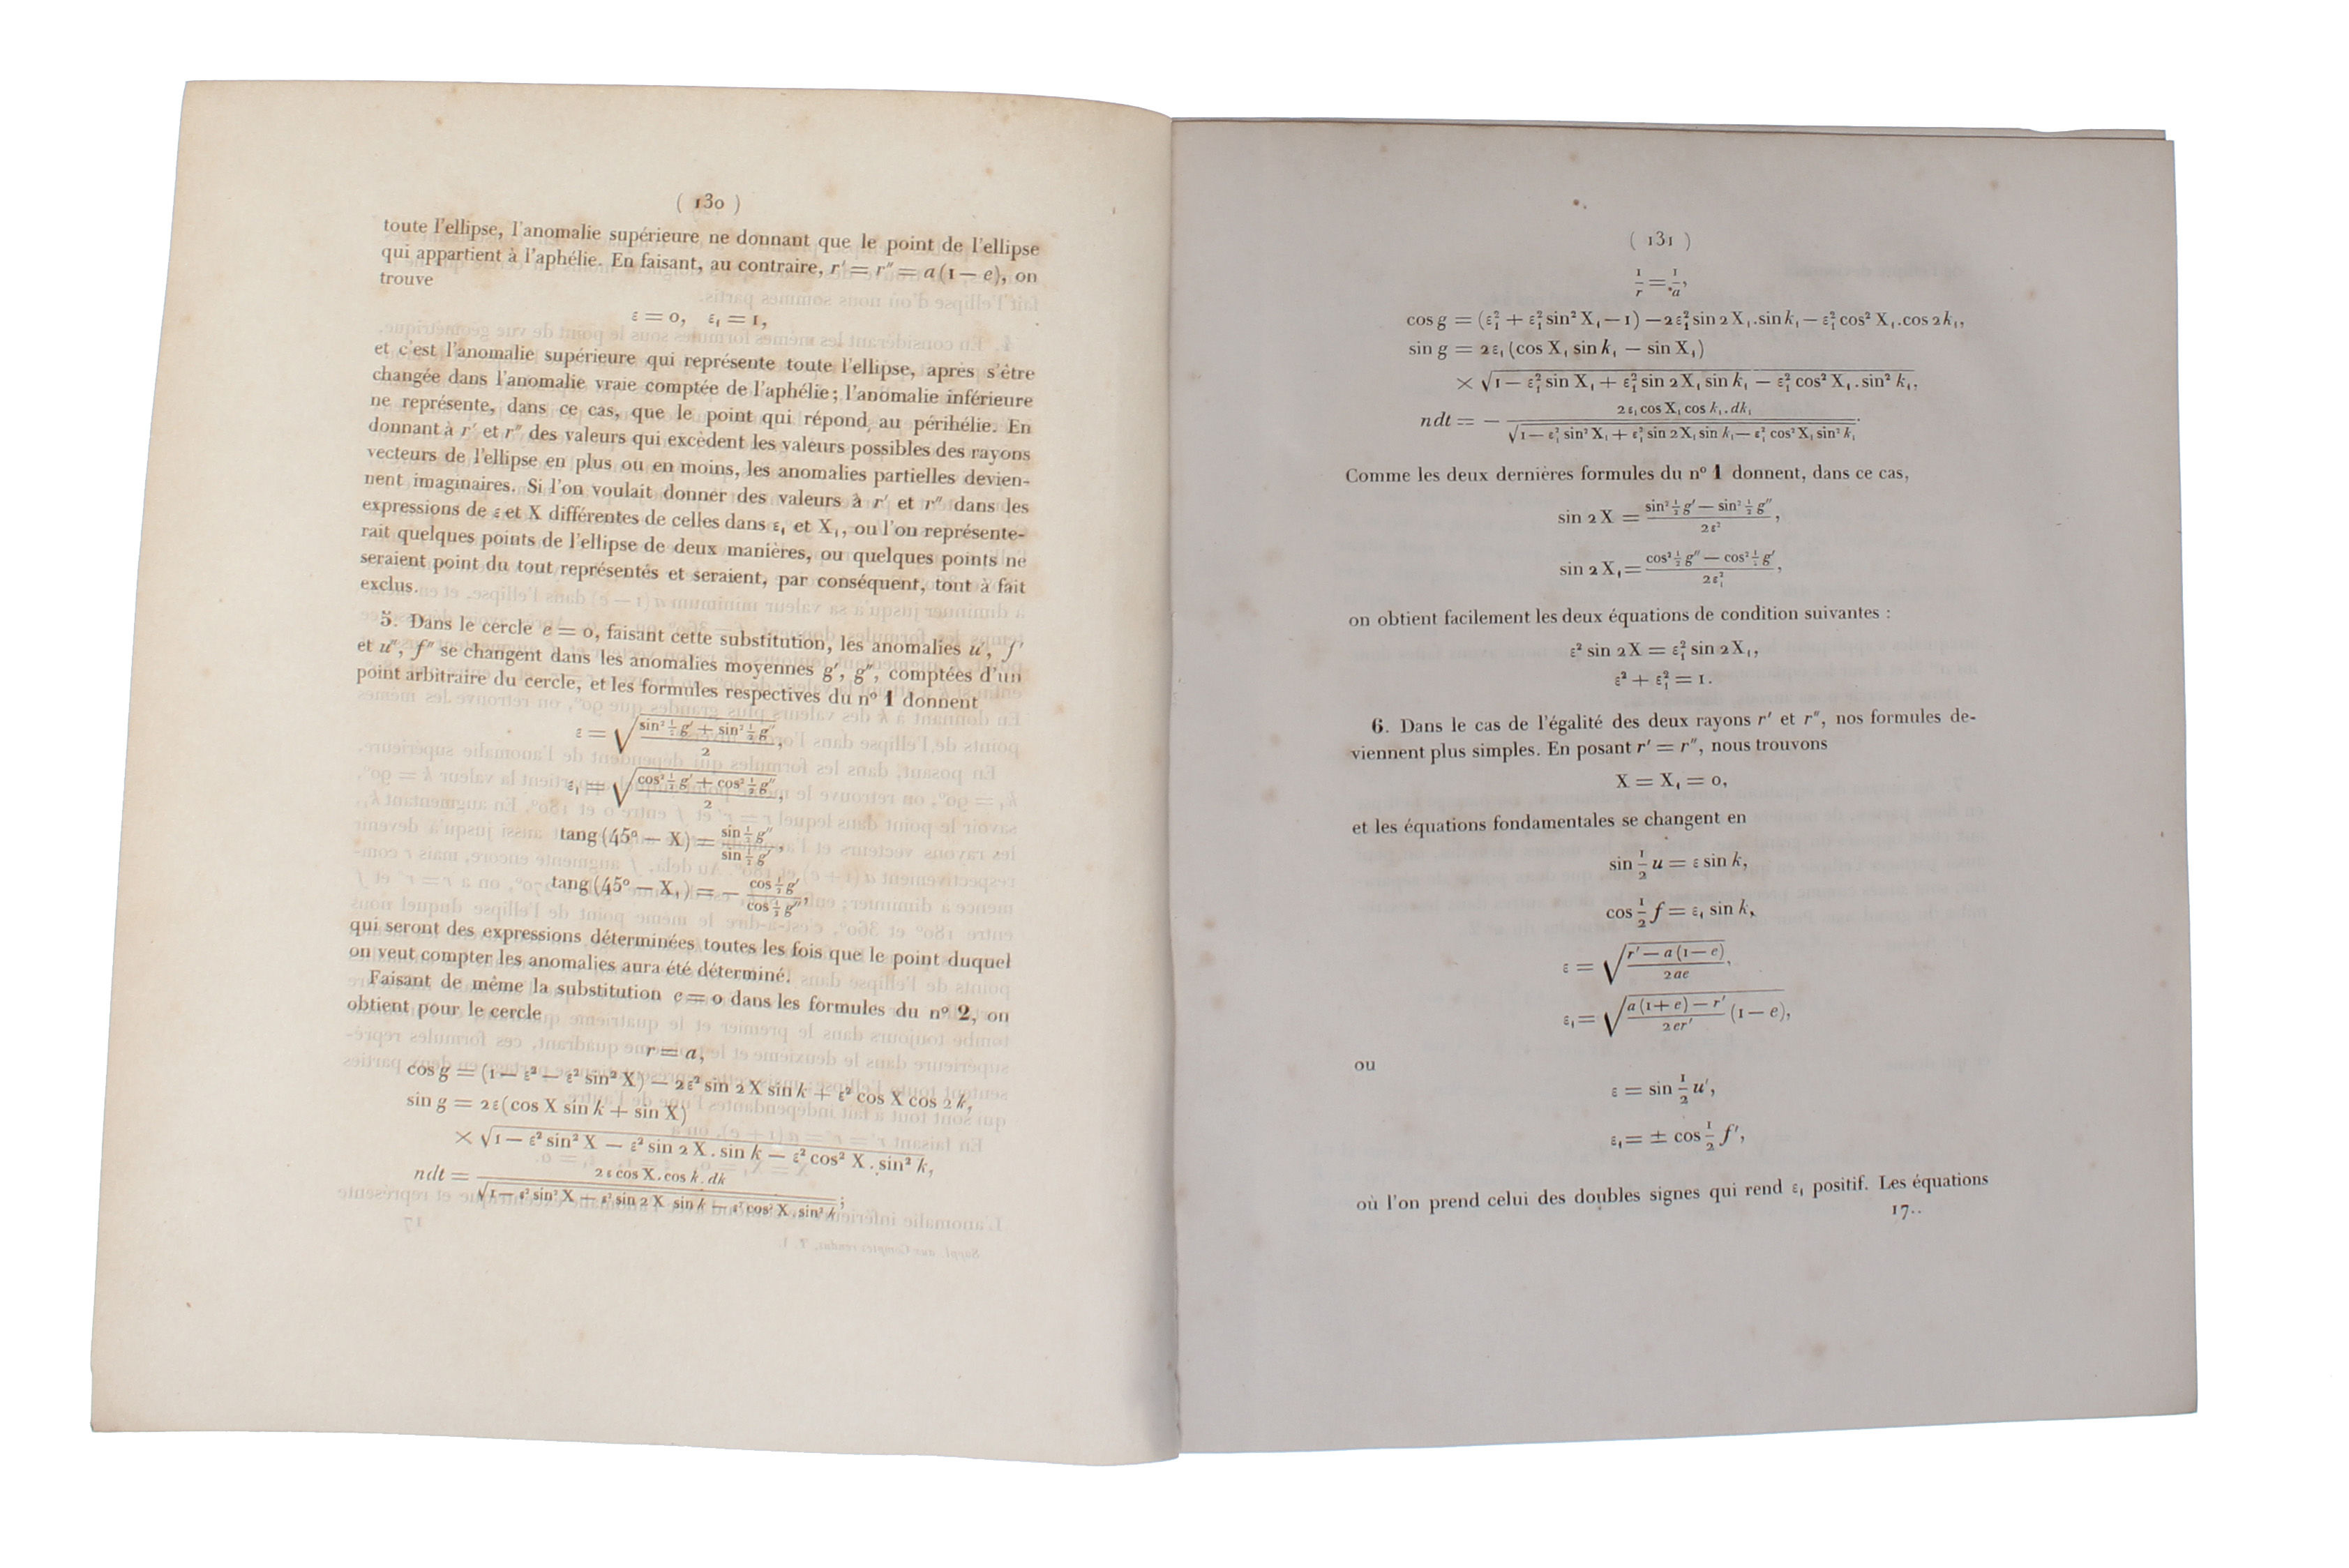 ( 130 )
toute l'ellipse, l'anomalie supérieure ne donnant que le point de l'ellipse
qui appartient à l'aphélie. En faisant, au contraire, r' = r" = a(1 — e), on
trouve
ε = 0, ε₁ = 1,
et c'est l'anomalie supérieure qui représente toute l'ellipse, après s'être
changée dans l'anomalie vraie comptée de l'aphélie; l'anomalie inférieure
ne représente, dans ce cas, que le point qui répond au périhélie. En
donnant à r' et r" des valeurs qui excèdent les valeurs possibles des rayons
vecteurs de l'ellipse en plus ou en moins, les anomalies partielles devien-
nent imaginaires. Si l'on voulait donner des valeurs à r' et r" dans les
expressions de ε et X différentes de celles dans ε₁ et X₁, ou l'on représente-
rait quelques points de l'ellipse de deux manières, ou quelques points ne
seraient point du tout représentés et seraient, par conséquent, tout à fait
exclus.
5. Dans le cercle e = 0, faisant cette substitution, les anomalies u', f'
et u", f" se changent dans les anomalies moyennes g', g", comptées d'un
point arbitraire du cercle, et les formules respectives du n° 1 donnent
ε = √((sin² ½ g' + sin² ½ g") / 2),
ε₁ = √((cos² ½ g' + cos² ½ g") / 2),
tang (45° — X) = sin ½ g" / sin ½ g',
tang (45° — X₁) = — cos ½ g' / cos ½ g",
qui seront des expressions déterminées toutes les fois que le point duquel
on veut compter les anomalies aura été déterminé.
Faisant de même la substitution e = 0 dans les formules du n° 2, on
obtient pour le cercle
r = a,
cos g = (1 — ε² — ε² sin² X) — 2ε² sin 2X sin k + ε² cos X cos 2k,
sin g = 2ε (cos X sin k + sin X)
× √(1 — ε² sin² X — ε² sin 2X . sin k — ε² cos² X . sin² k),
ndt = 2ε cos X . cos k . dk / √(1 — ε² sin² X — ε² sin 2X sin k — ε² cos² X . sin² k);
( 131 )
1/r = 1/a,
cos g = (ε₁² + ε₁² sin² X₁ — 1) — 2ε₁² sin 2X₁ . sin k₁ — ε₁² cos² X₁ . cos 2k₁,
sin g = 2ε₁ (cos X₁ sin k₁ — sin X₁)
× √(1 — ε₁² sin X₁ + ε₁² sin 2X₁ sin k₁ — ε₁² cos² X₁ . sin² k₁),
ndt = — 2ε₁ cos X₁ cos k₁ . dk₁ / √(1 — ε₁² sin² X₁ + ε₁² sin 2X₁ sin k₁ — ε₁² cos² X₁ sin² k₁).
Comme les deux dernières formules du n° 1 donnent, dans ce cas,
sin 2X = (sin² ½ g' — sin² ½ g") / 2ε²,
sin 2X₁ = (cos² ½ g" — cos² ½ g') / 2ε₁²,
on obtient facilement les deux équations de condition suivantes :
ε² sin 2X = ε₁² sin 2X₁,
ε² + ε₁² = 1.
6. Dans le cas de l'égalité des deux rayons r' et r", nos formules de-
viennent plus simples. En posant r' = r", nous trouvons
X = X₁ = 0,
et les équations fondamentales se changent en
sin ½ u = ε sin k,
cos ½ f = ε₁ sin k,
ε = √((r' — a (1 — e)) / 2ae),
ε₁ = √((a (1 + e) — r') / 2er' (1 — e)),
ou
ε = sin ½ u',
ε₁ = ± cos ½ f',
où l'on prend celui des doubles signes qui rend ε₁ positif. Les équations
17..